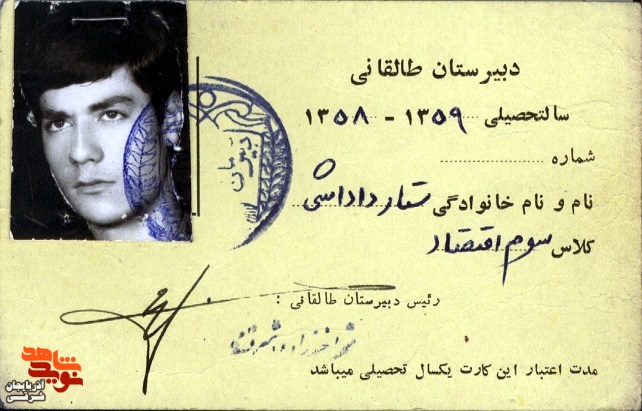 دبیرستان طالقانی
سالتحصیلی ۱۳۵۹ - ۱۳۵۸
شماره
نام و نام خانوادگی ستار داداشی
کلاس سوم اقتصاد
رئیس دبیرستان طالقانی :
مدت اعتبار این کارت یکسال تحصیلی میباشد
دبیرستان
نوید شاهد
آذربایجان شرقی